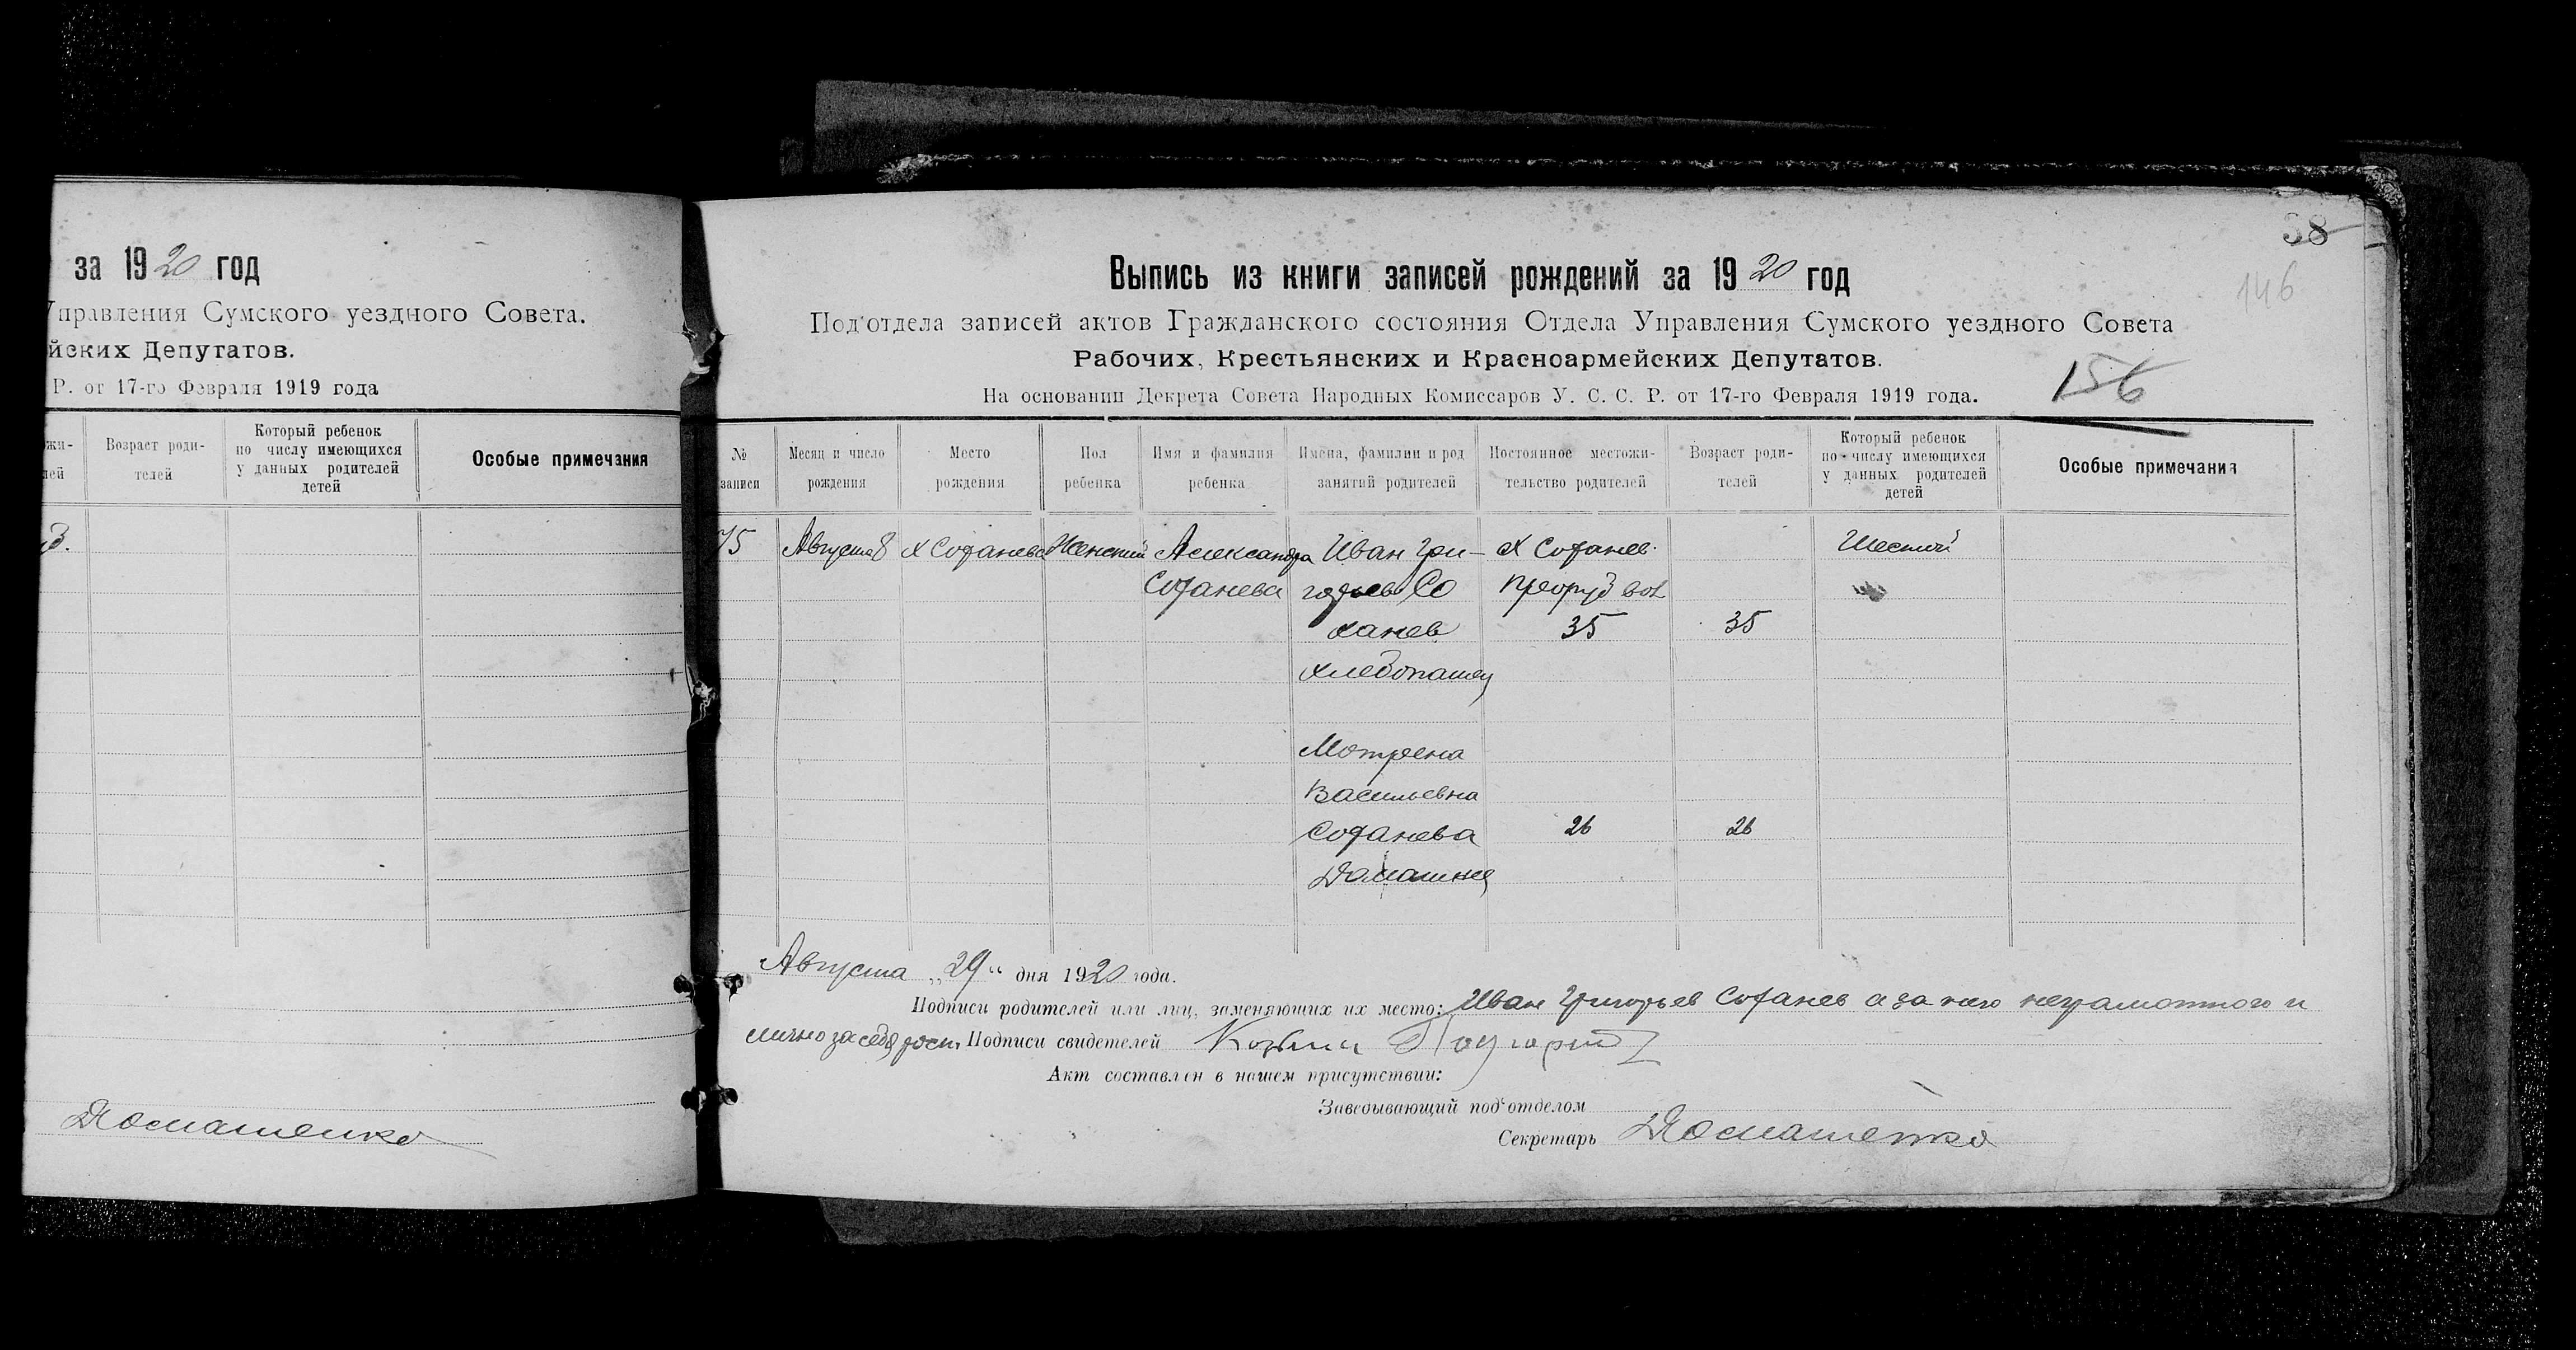 за 1920 год
Управления Сумского уездного Совета.
йских Депутатов.
Р. от 17-го Февраля 1919 года
жи-
лей
Возраст роди-
телей
Который ребенок
по числу имеющихся
у данных родителей
детей
Особые примечания
Домашенко
38
146
156
Выпись из книги записей рождений за 1920 год
Под'отдела записей актов Гражданского состояния Отдела Управления Сумского уездного Совета
Рабочих, Крестьянских и Красноармейских Депутатов.
На основании Декрета Совета Народных Комиссаров У. С. С. Р. от 17-го Февраля 1919 года.
№
записи
Месяц и число
рождения
Место
рождения
Пол
ребенка
Имя и фамилия
ребенка
Имена, фамилии и род
занятий родителей
Постоянное местожи-
тельство родителей
Возраст роди-
телей
Который ребенок
по числу имеющихся
у данных родителей
детей
Особые примечания
75
Августа 8
Х Соханева
Женский
Александра
Соханева
Иван Гри-
горьев Со
ханев
Хлебопашец
Мотрена
Васильевна
Соханева
Домашняя
Х Соханев
35
26
35
26
Шестой
Августа „29“ дня 1920 года.
Подписи родителей или лиц, заменяющих их место: Иван Григорьев Соханев а за него неграмотного и
лично за себя росп. Подписи свидетелей
Акт составлен в нашем присутствии:
Заведывающий под'отделом
Секретарь Домашенко